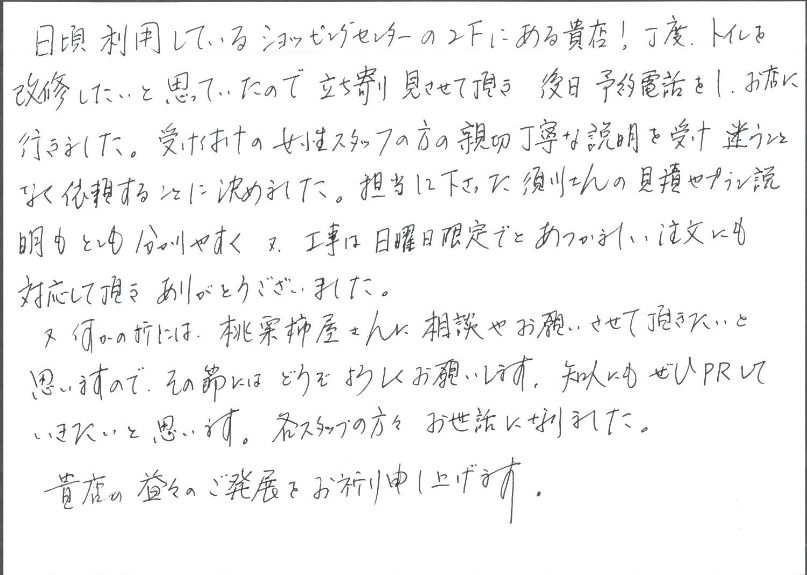 日頃利用しているショッピングセンターの2Fにある貴店！丁度、トイレを
改修したいと思っていたので立ち寄り見させて頂き 後日予約電話をし、お店に
行きました。受け付けの女性スタッフの方の親切丁寧な説明を受け 迷うこと
なく依頼することに決めました。担当して下さった須川さんの見積やプラン説
明もとても分かりやすく 又、工事は日曜日限定でとあつかましい注文にも
対応して頂き ありがとうございました。
又 何かの折には、桃栗柿屋さんに相談やお願いさせて頂きたいと
思いますので、その節には どうぞよろしくお願いします。知人にもぜひPRして
いきたいと思います。各スタッフの方々 お世話になりました。
貴店の益々のご発展をお祈り申し上げます。